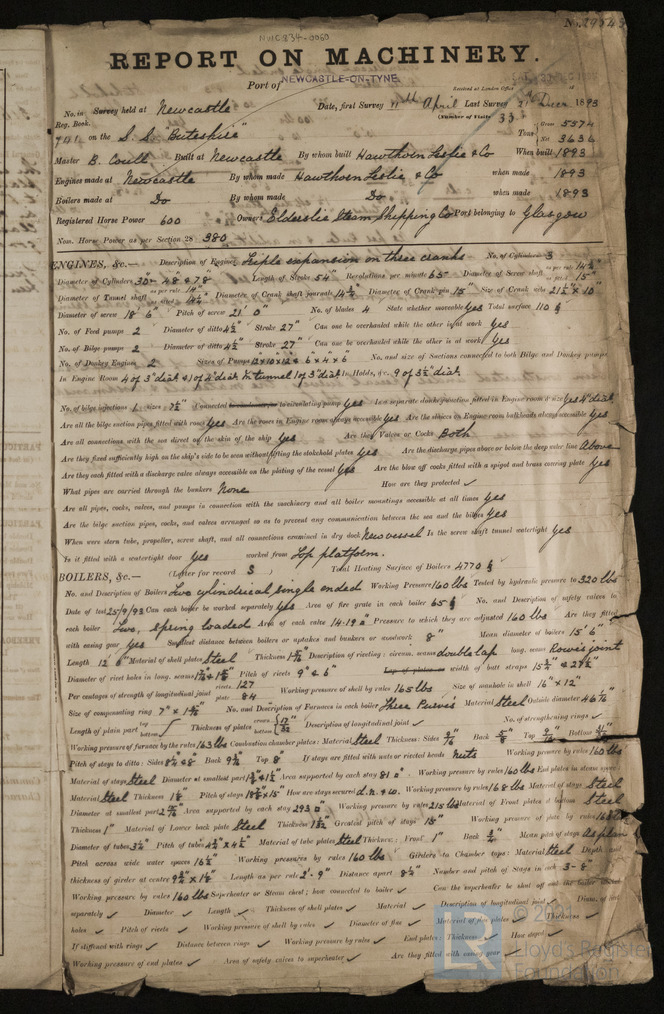 No. 29543
NWC 834-0060
REPORT ON MACHINERY.
Port of NEWCASTLE-ON-TYNE.
Received at London Office
No. in Survey held at Newcastle Date, first Survey 11th April Last Survey 21st Decr 1893
Reg. Book. (Number of Visits 33
on the S.S. "Buteshire" Tons Gross 5574 Net 3636
Master B. Coull Built at Newcastle By whom built Hawthorn Leslie & Co When built 1893
Engines made at Newcastle By whom made Hawthorn Leslie & Co when made 1893
Boilers made at Do By whom made Do when made 1893
Registered Horse Power 600 Owners Elderslie Steam Shipping Co Port belonging to Glasgow
Nom. Horse Power as per Section 28 380
ENGINES, &c.— Description of Engines Triple expansion on three cranks No. of Cylinders 3
Diameter of Cylinders 30" 48" & 78" Length of Stroke 54" Revolutions per minute 65 Diameter of Screw shaft as per rule 14 as fitted 15"
Diameter of Tunnel shaft Diameter of Crank shaft journals Diameter of Crank pin 15" Size of Crank webs 21½" x 10"
Diameter of screw 18' 6" Pitch of screw 21' 0" No. of blades 4 State whether moveable Yes Total surface 110
No. of Feed pumps 2 Diameter of ditto 4½" Stroke 27" Can one be overhauled while the other is at work Yes
No. of Bilge pumps 2 Diameter of ditto 4½" Stroke 27" Can one be overhauled while the other is at work Yes
No. of Donkey Engines 2 Sizes of Pumps No. and size of Suctions connected to both Bilge and Donkey pumps
In Engine Room 4 of 3" diar & 1 of 4" diar In tunnel 1 of 3" diar In Holds, &c. 9 of 3½" diar
No. of bilge injections 1 sizes 7½" Connected to condenser, or to circulating pump Yes Is a separate donkey suction fitted in Engine room & size Yes 4" diar
Are all the bilge suction pipes fitted with roses Yes Are the roses in Engine room always accessible Yes Are the sluices on Engine room bulkheads always accessible Yes
Are all connections with the sea direct on the skin of the ship Yes Are they Valves or Cocks Both
Are they fixed sufficiently high on the ship's side to be seen without lifting the stokehold plates Yes Are the discharge pipes above or below the deep water line Above
Are they each fitted with a discharge valve always accessible on the plating of the vessel Yes Are the blow off cocks fitted with a spigot and brass covering plate Yes
What pipes are carried through the bunkers None How are they protected ✓
Are all pipes, cocks, valves, and pumps in connection with the machinery and all boiler mountings accessible at all times Yes
Are the bilge suction pipes, cocks, and valves arranged so as to prevent any communication between the sea and the bilges Yes
When were stern tube, propeller, screw shaft, and all connections examined in dry dock New vessel Is the screw shaft tunnel watertight Yes
Is it fitted with a watertight door Yes worked from Top platform.
BOILERS, &c.— (Letter for record S ) Total Heating Surface of Boilers 4770
No. and Description of Boilers Two cylindrical single ended Working Pressure 160 lbs Tested by hydraulic pressure to 320 lbs
Date of test 25/9/93 Can each boiler be worked separately Yes Area of fire grate in each boiler 65 No. and Description of safety valves to
each boiler Two, Spring loaded Area of each valve 14.19 Pressure to which they are adjusted 160 lbs Are they fitted
with easing gear Yes Smallest distance between boilers or uptakes and bunkers or woodwork 8" Mean diameter of boilers 15' 6"
Length 12' 6" Material of shell plates Steel Thickness Description of riveting: circum. seams double lap long. seams Rowe's joint
Diameter of rivet holes in long. seams Pitch of rivets 9" & 6" Lap of plates or width of butt straps
Per centages of strength of longitudinal joint rivets 127 plate 84 Working pressure of shell by rules 165 lbs Size of manhole in shell 16" x 12"
Size of compensating ring 7" x 1 No. and Description of Furnaces in each boiler Three Purves' Material Steel Outside diameter
Length of plain part top bottom Thickness of plates crown bottom 17/32 Description of longitudinal joint ✓ No. of strengthening rings ✓
Working pressure of furnace by the rules 163 lbs Combustion chamber plates: Material Steel Thickness: Sides 9/16 Back 5/8 Top 9/16 Bottom
Pitch of stays to ditto: Sides Back Top 8" If stays are fitted with nuts or riveted heads nuts Working pressure by rules 160 lbs
Material of stays Steel Diameter at smallest part Area supported by each stay 81 Working pressure by rules 160 lbs End plates in steam space:
Material Steel Thickness Pitch of stays How are stays secured d.n. & w. Working pressure by rules 168 lbs Material of stays Steel
Diameter at smallest part Area supported by each stay 293 Working pressure by rules 215 lbs Material of Front plates at bottom Steel
Thickness 1" Material of Lower back plate Steel Thickness Greatest pitch of stays 15" Working pressure of plate by rules
Diameter of tubes 3½" Pitch of tubes Material of tube plates Steel Thickness: Front 1" Back ¾" Mean pitch of stays As plan
Pitch across wide water spaces Working pressures by rules 160 lbs Girders to Chamber tops: Material Steel Depth and
thickness of girder at centre Length as per rule 2'-9" Distance apart Number and pitch of Stays in each 3-8"
Working pressure by rules 160 lbs Superheater or Steam chest; how connected to boiler ✓ Can the superheater be shut off and the boiler
separately ✓ Diameter ✓ Length ✓ Thickness of shell plates ✓ Material ✓ Description of longitudinal joint Diam. of rivet
holes ✓ Pitch of rivets ✓ Working pressure of shell by rules ✓ Diameter of flue ✓ Material of flue plates Thickness ✓
If stiffened with rings ✓ Distance between rings ✓ Working pressure by rules ✓ End plates: Thickness ✓ How stayed ✓
Working pressure of end plates ✓ Area of safety valves to superheater ✓ Are they fitted with easing gear
© 2021
Lloyd's Register
Foundation